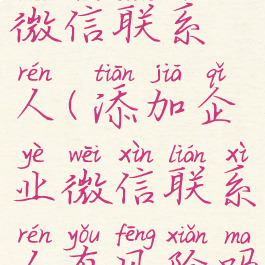 微信联系
rén tiān jiā qǐ
人(添加企
yè wēi xìn lián xì
业微信联系
rén yǒu fēng xiǎn ma
人有风险吗